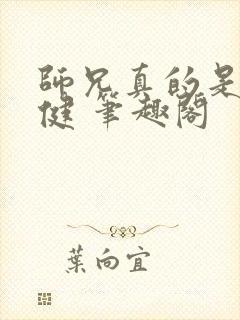 師兄真的是
健 筆趣閣
葉向宜